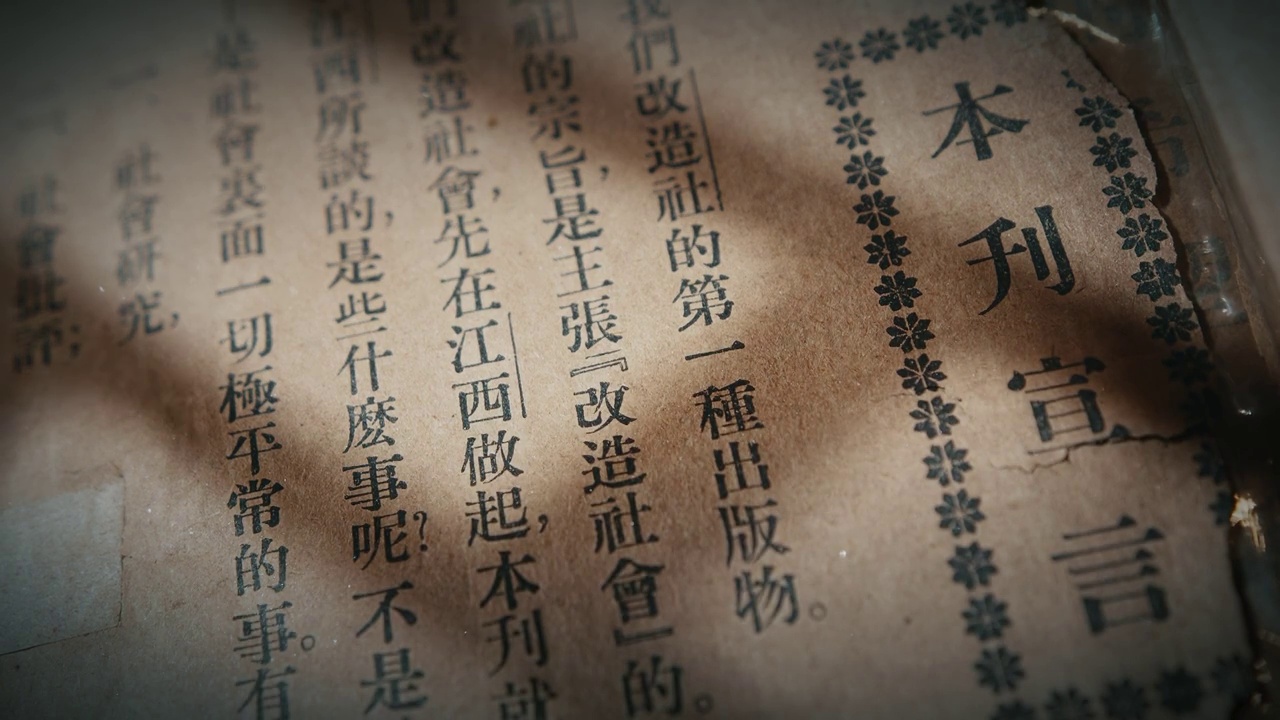 本刊宣言
我們改造社的第一種出版物。
社的宗旨,是主張『改造社會』的。
們改造社會,先在江西做起,本刊就
江西所談的,是些什麽事呢?不是
是社會裏面一切極平常的事。有
一、社會研究,
社會批評;